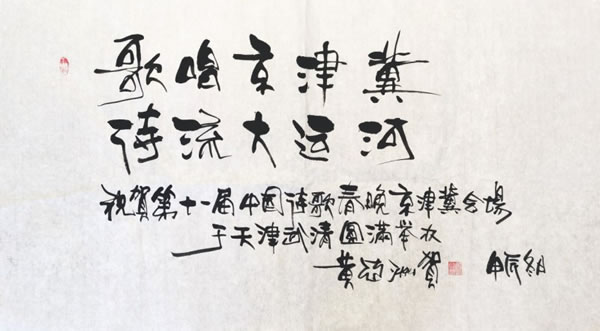 歌唱京津冀
诗流大运河
祝賀第十一届中国诗歌春晚京津冀会場
于天津武清圓滿举办
黄亚洲賀 甲辰